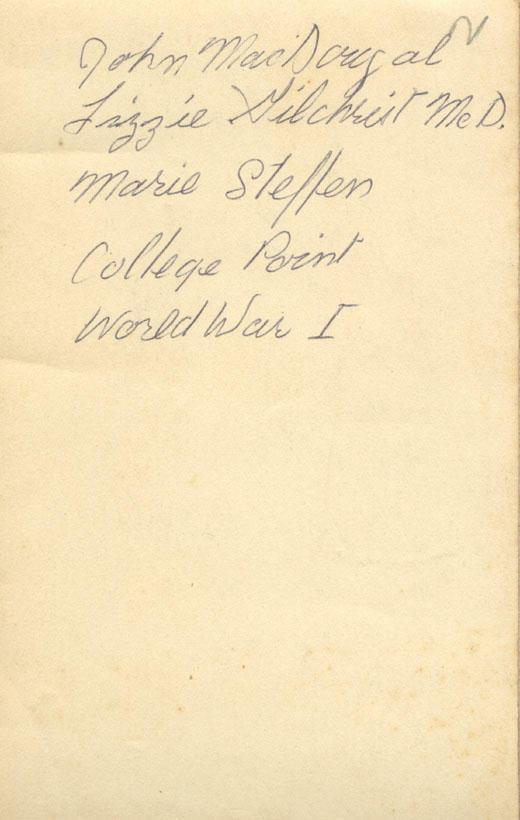 John MacDougal
Lizzie Gilchrist McD.
Marie Steffen
College Point
World War I